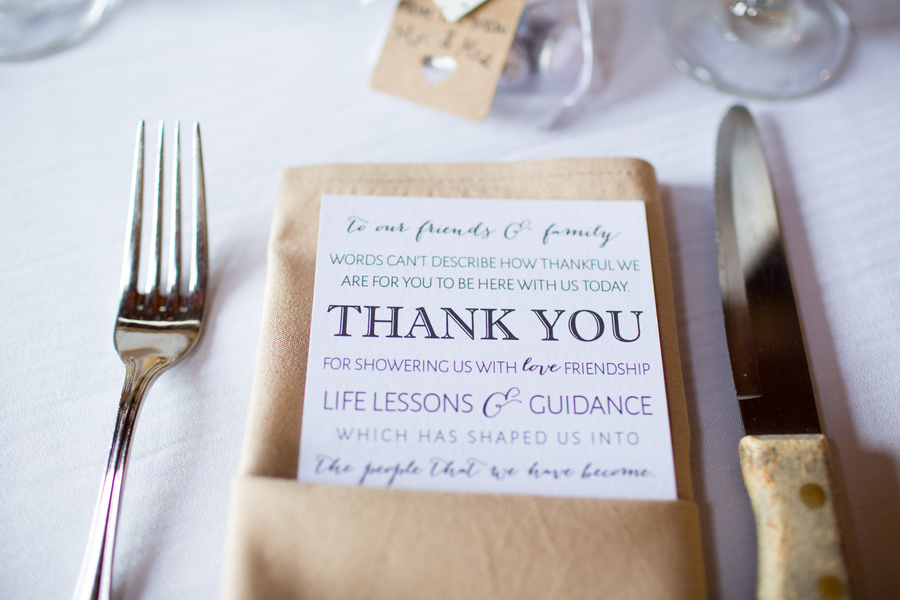 Mr. & Mrs.
To our friends & family
WORDS CAN'T DESCRIBE HOW THANKFUL WE
ARE FOR YOU TO BE HERE WITH US TODAY.
THANK YOU
FOR SHOWERING US WITH love FRIENDSHIP
LIFE LESSONS & GUIDANCE
WHICH HAS SHAPED US INTO
The people that we have become.